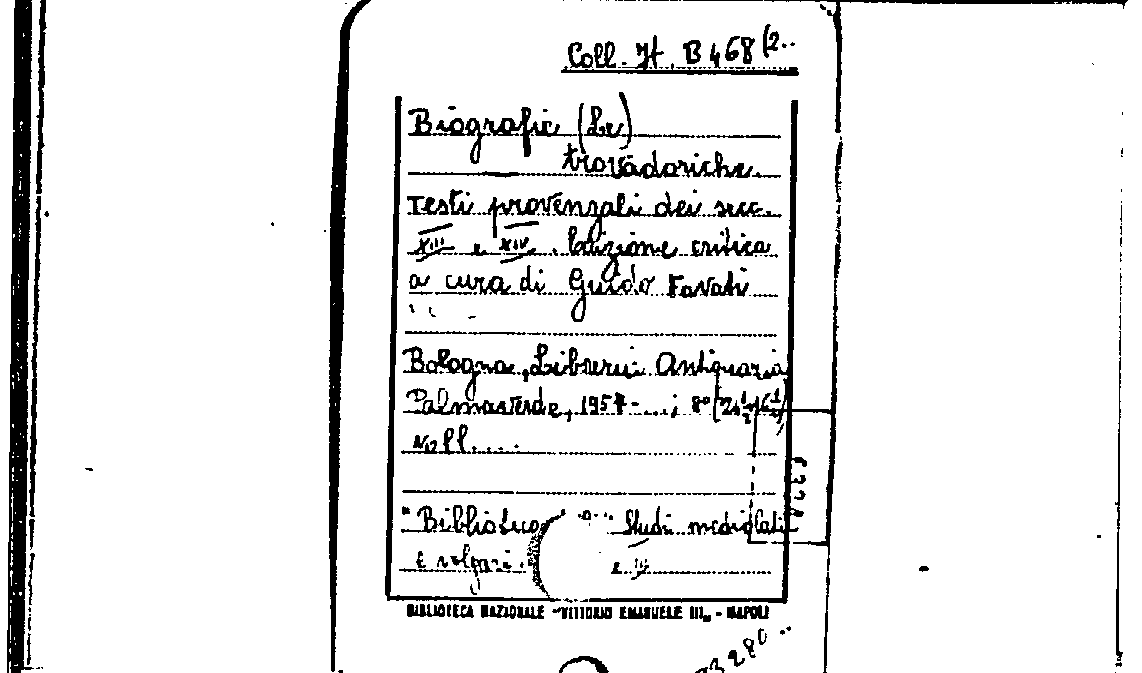 Coll. It. B 468 (2..
Biografie (Le)
trovadoriche.
Testi provenzali dei secc.
XIII e XIV. Edizione critica
a cura di Guido Favati
Bologna, Libreria Antiquaria
Palmaverde, 1957-...; 8°
voll. ...
"Biblioteca Studi mediolati
e volgari.
BIBLIOTECA NAZIONALE "VITTORIO EMANUELE III„ - NAPOLI